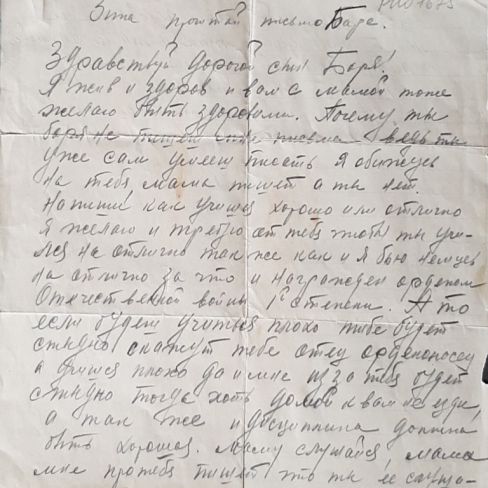 Зина прочитай письмо Боре.
Здравствуй дорогой сын Боря!
Я жив и здоров и вам с мамой тоже
желаю быть здоровыми. Почему ты
Боря не пишеш мне письма ведь ты
уже сам умееш писать я обижусь
на тебя, мама пишет а ты нет.
Напиши как учишся хорошо или отлично
я желаю и требую от тебя чтобы ты учи-
лся на отлично так же как и я бью немцев
на отлично за что и награжден орденом
Отечественной войны 1й степени. А то
если будеш учиться плохо тебе будет
стыдно скажут тебе отец орденоносец
а учишся плохо да и мне из за тебя будет
стыдно тогда хоть домой к вам не едь,
а так же и дисциплина должна
быть хорошая. Маму слушайся, мама
мне про тебя пишет что ты ее слуша-